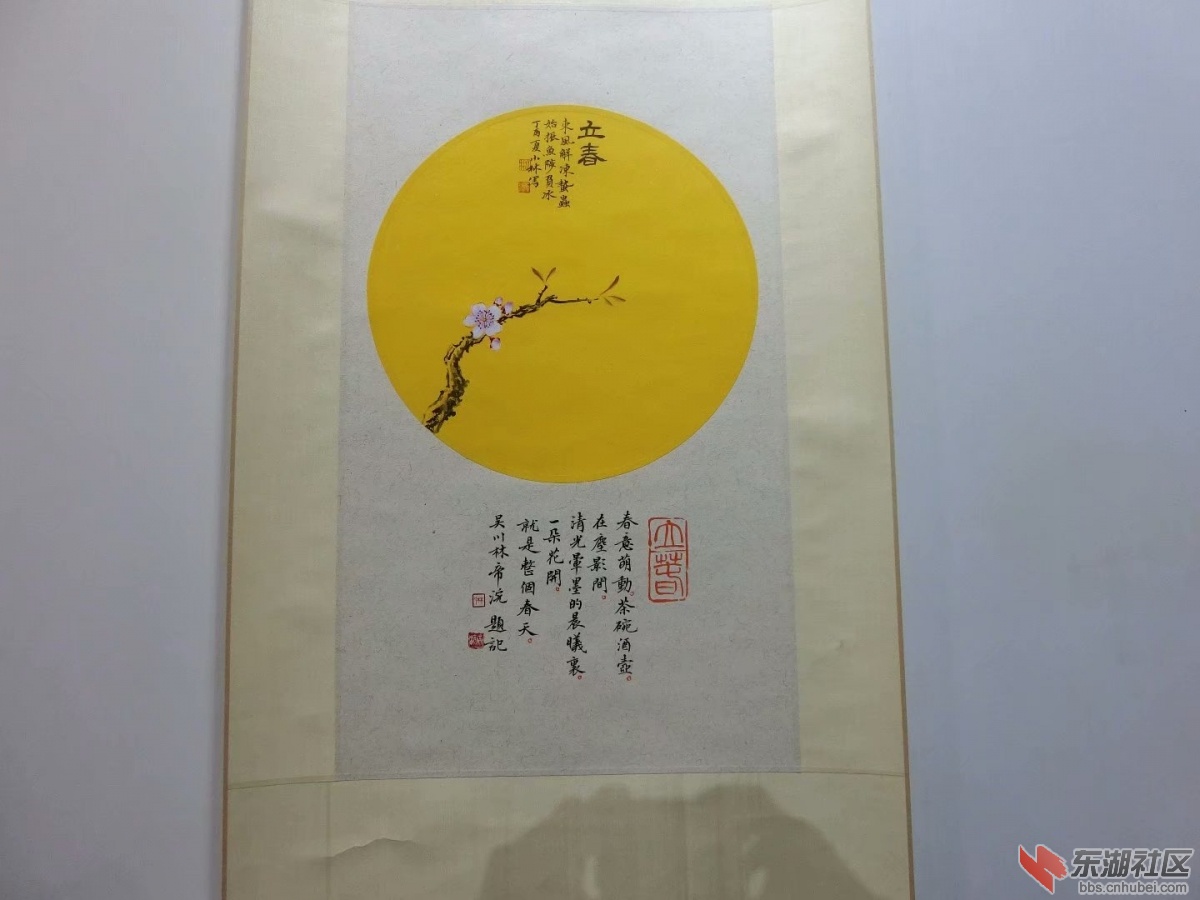 立春
東風解凍蟄蟲
始振魚陟負冰
丁酉夏小林寫
立春
春意萌動。茶碗酒壺。
在塵影間。
清光暈墨的晨曦裏。
一朵花開。
就是整個春天。
吴川林帝浣 題記
东湖社区
bbs.cnhubei.com